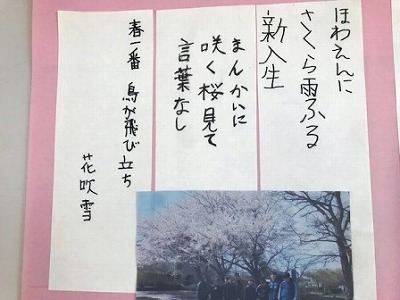 ほわえんに
さくら雨ふる
新入生
まんかいに
咲く桜見て
言葉なし
春一番 鳥が飛び立ち
花吹雪